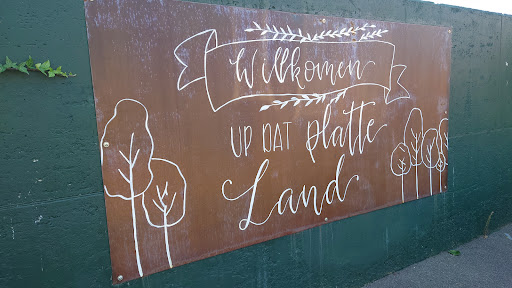 Willkomen
UP DAT platte
Land